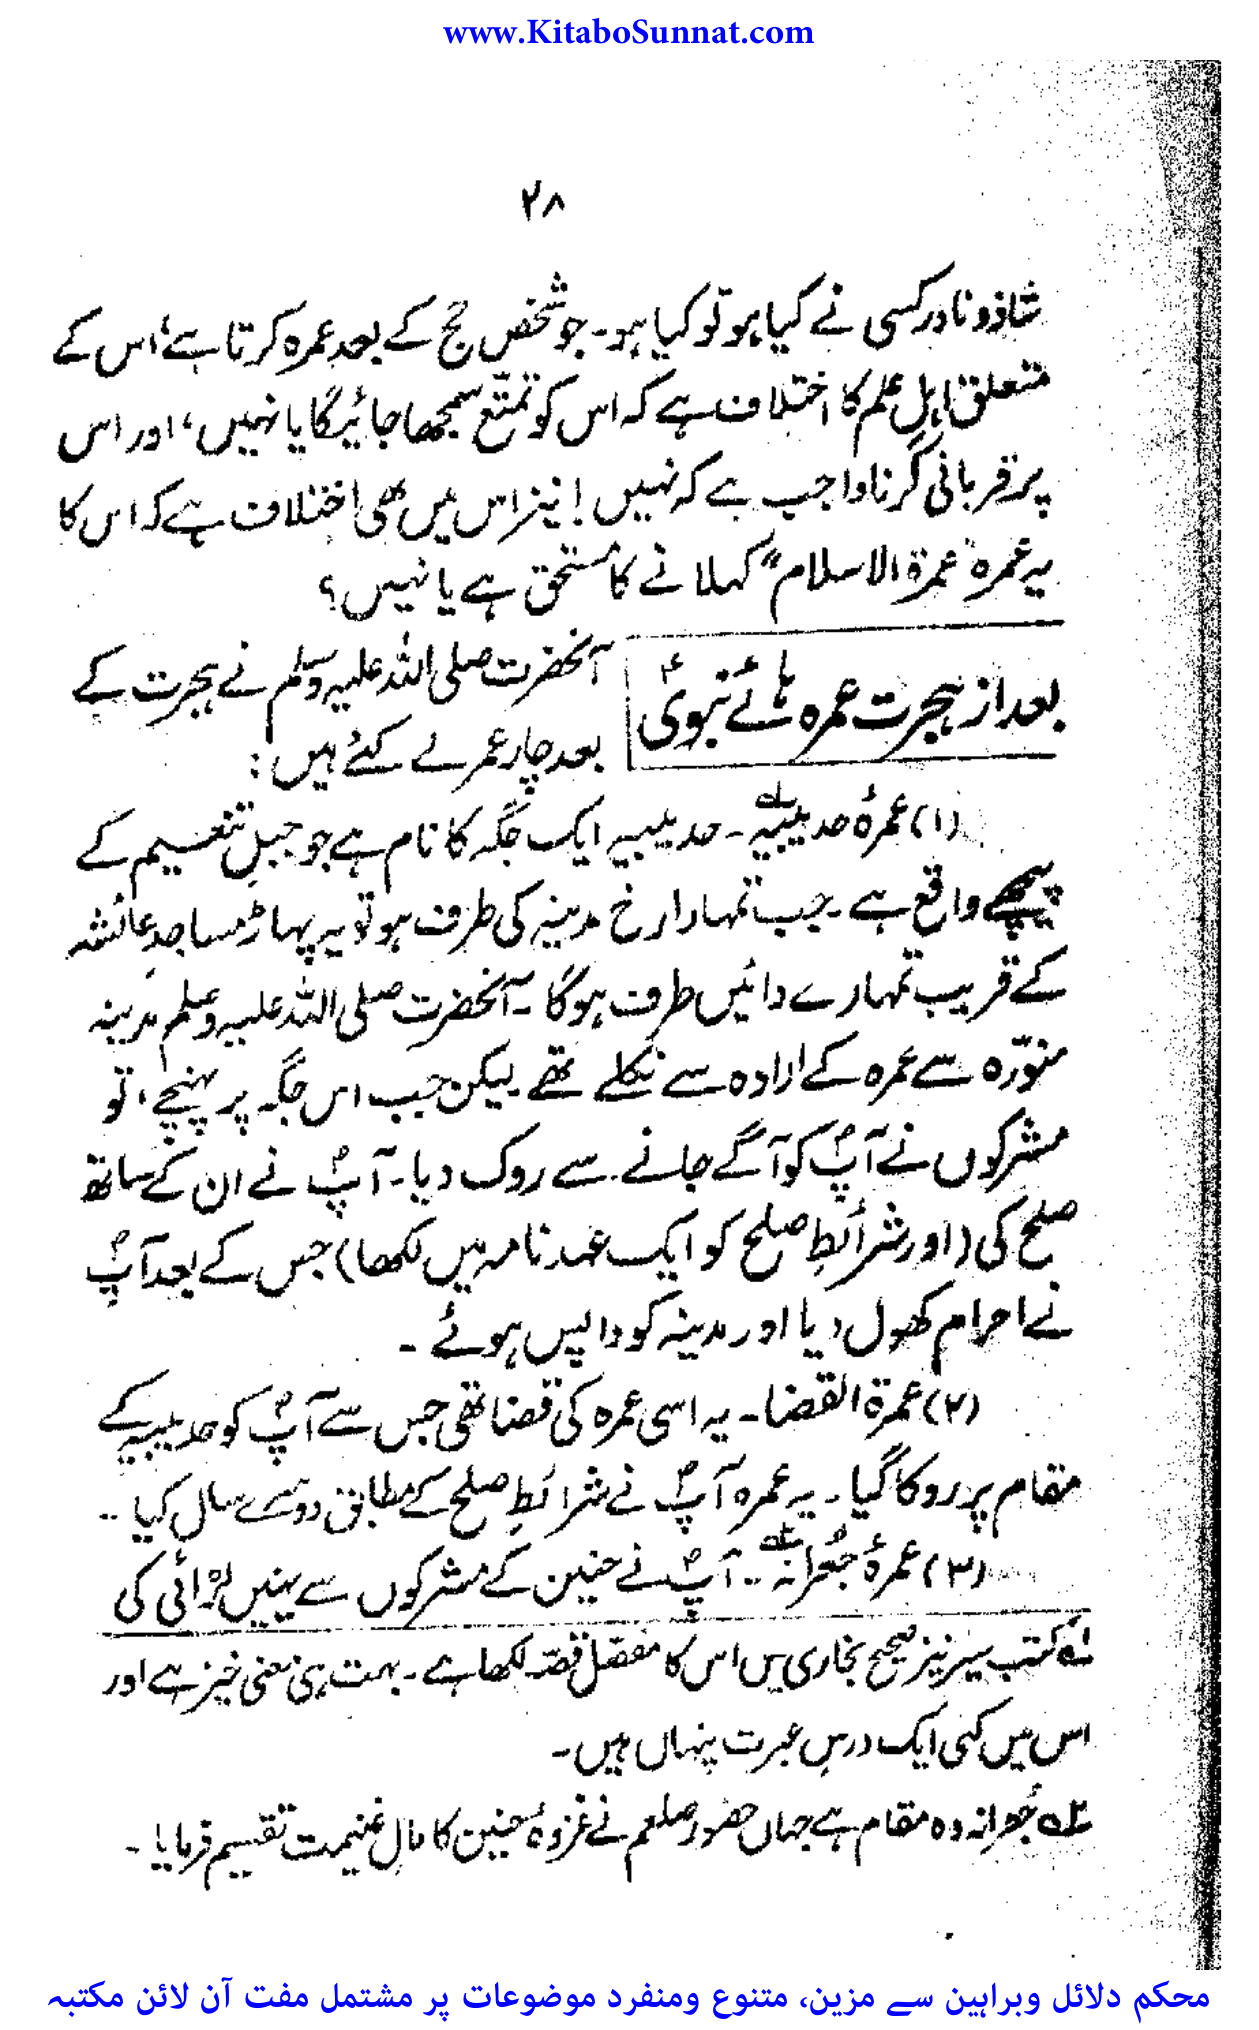 www.KitaboSunnat.com
۲۸
شاذونادر کسی نے کیا ہو تو کیا ہو۔ جو شخص حج کے بعد عمرہ کرتا ہے، اس کے
متعلق اہلِ علم کا اختلاف ہے کہ اس کو تمتّع سمجھا جائیگا یا نہیں، اور اس
پر قربانی کرنا واجب ہے کہ نہیں! نیز اس میں بھی اختلاف ہے کہ اس کا
یہ عمرہ ”عمرۃ الاسلام“ کہلانے کا مستحق ہے یا نہیں؟
بعد از ہجرت عمرہ ہائے نبویؐ
آنحضرت صلی اللہ علیہ وسلّم نے ہجرت کے
بعد چار عمرے کئے ہیں:
(۱) عمرۂ حدیبیہ۱؎۔ حدیبیہ ایک جگہ کا نام ہے جو جبلِ تنعیم کے
پیچھے واقع ہے۔ جب تمہارا رخ مدینہ کی طرف ہو تو یہ پہاڑ مساجدِ عائشہ
کے قریب تمہارے دائیں طرف ہوگا۔ آنحضرت صلی اللہ علیہ وسلم مدینہ
منوّرہ سے عمرہ کے ارادہ سے نکلے تھے لیکن جب اس جگہ پر پہنچے، تو
مشرکوں نے آپؐ کو آگے جانے سے روک دیا۔ آپؐ نے ان کے ساتھ
صلح کی (اور شرائطِ صلح کو ایک عہد نامہ میں لکھا) جس کے بعد آپؐ
نے احرام کھول دیا اور مدینہ کو واپس ہوئے۔
(۲) عمرۃ القضا۔ یہ اسی عمرہ کی قضا تھی جس سے آپؐ کو حدیبیہ کے
مقام پر روکا گیا۔ یہ عمرہ آپؐ نے شرائطِ صلح کے مطابق دوسرے سال کیا۔
(۳) عمرۂ جُعرانہ۲؎۔ آپؐ نے حنین کے مشرکوں سے یہیں لڑائی کی
۱؎ کتب سیر نیز صحیح بخاری میں اس کا مفصّل قصّہ لکھا ہے۔ بہت ہی معنی خیز ہے اور
اس میں کئی ایک درسِ عبرت پنہاں ہیں۔
۲؎ جُعرانہ وہ مقام ہے جہاں حضور صلعم نے غزوۂ حنین کا مالِ غنیمت تقسیم فرمایا۔
محکم دلائل وبراہین سے مزین، متنوع ومنفرد موضوعات پر مشتمل مفت آن لائن مکتبہ